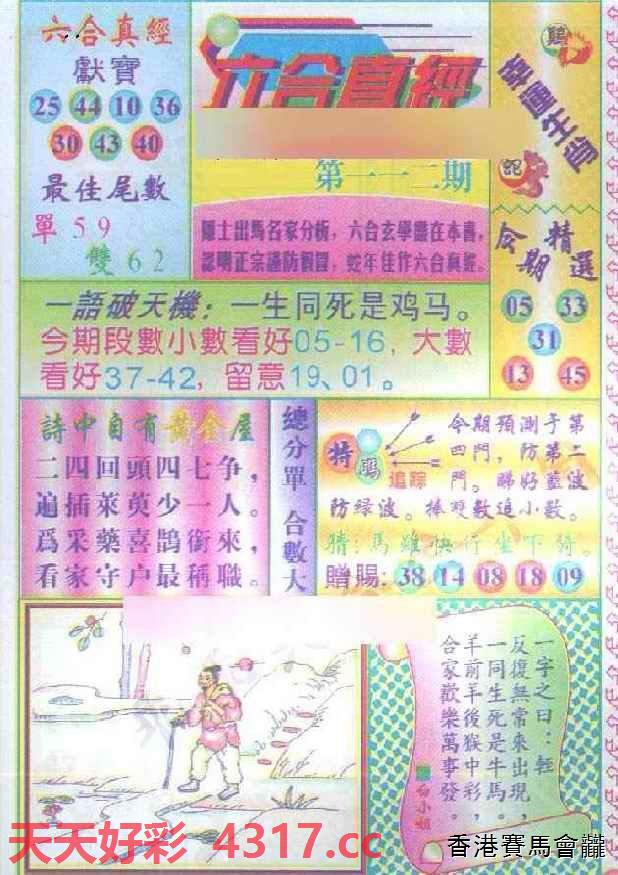 六合真經
獻寶
25 44 10 36
30 43 40
最佳尾數
單 5 9
雙 6 2
六合真經
第一一二期
隱士出馬名家分析，六合玄學盡在本書，
認明正宗謹防假冒，蛇年佳作六合真經。
幸運生肖
鷄
蛇
今期精選
05 33
31
13 45
一語破天機：一生同死是鸡马。
今期段數小數看好05-16，大數
看好37-42，留意19、01。
詩中自有黃金屋
二四回頭四七争，
遍插萊萸少一人。
爲采藥喜鵲銜來，
看家守户最稱職。
總分單 合數大
特碼
追踪
今期預測于第
四門，防第二
門。睇好藍波
防绿波。捧双數追小數。
猜：馬雖快行坐下騎。
贈賜：38 14 08 18 09
一字之曰：輕
反復無常來出現，
一同生死是牛馬。
羊前羊後猴中彩，
合家歡樂萬事發。
白小姐
天天好彩 4317.cc
香港賽馬會